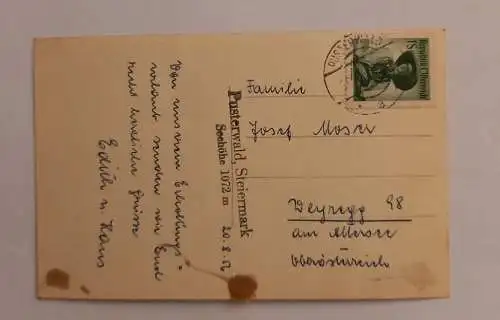 Von unserem Erholungs-
urlaub senden wir Euch
recht herzliche Grüsse
Edith u. Hans
Pusterwald, Steiermark
Seehöhe 1072 m
20.8.56
Familie
Josef Moser
Weyregg 98
am Attersee
Oberösterreich
Republik Österreich
1S